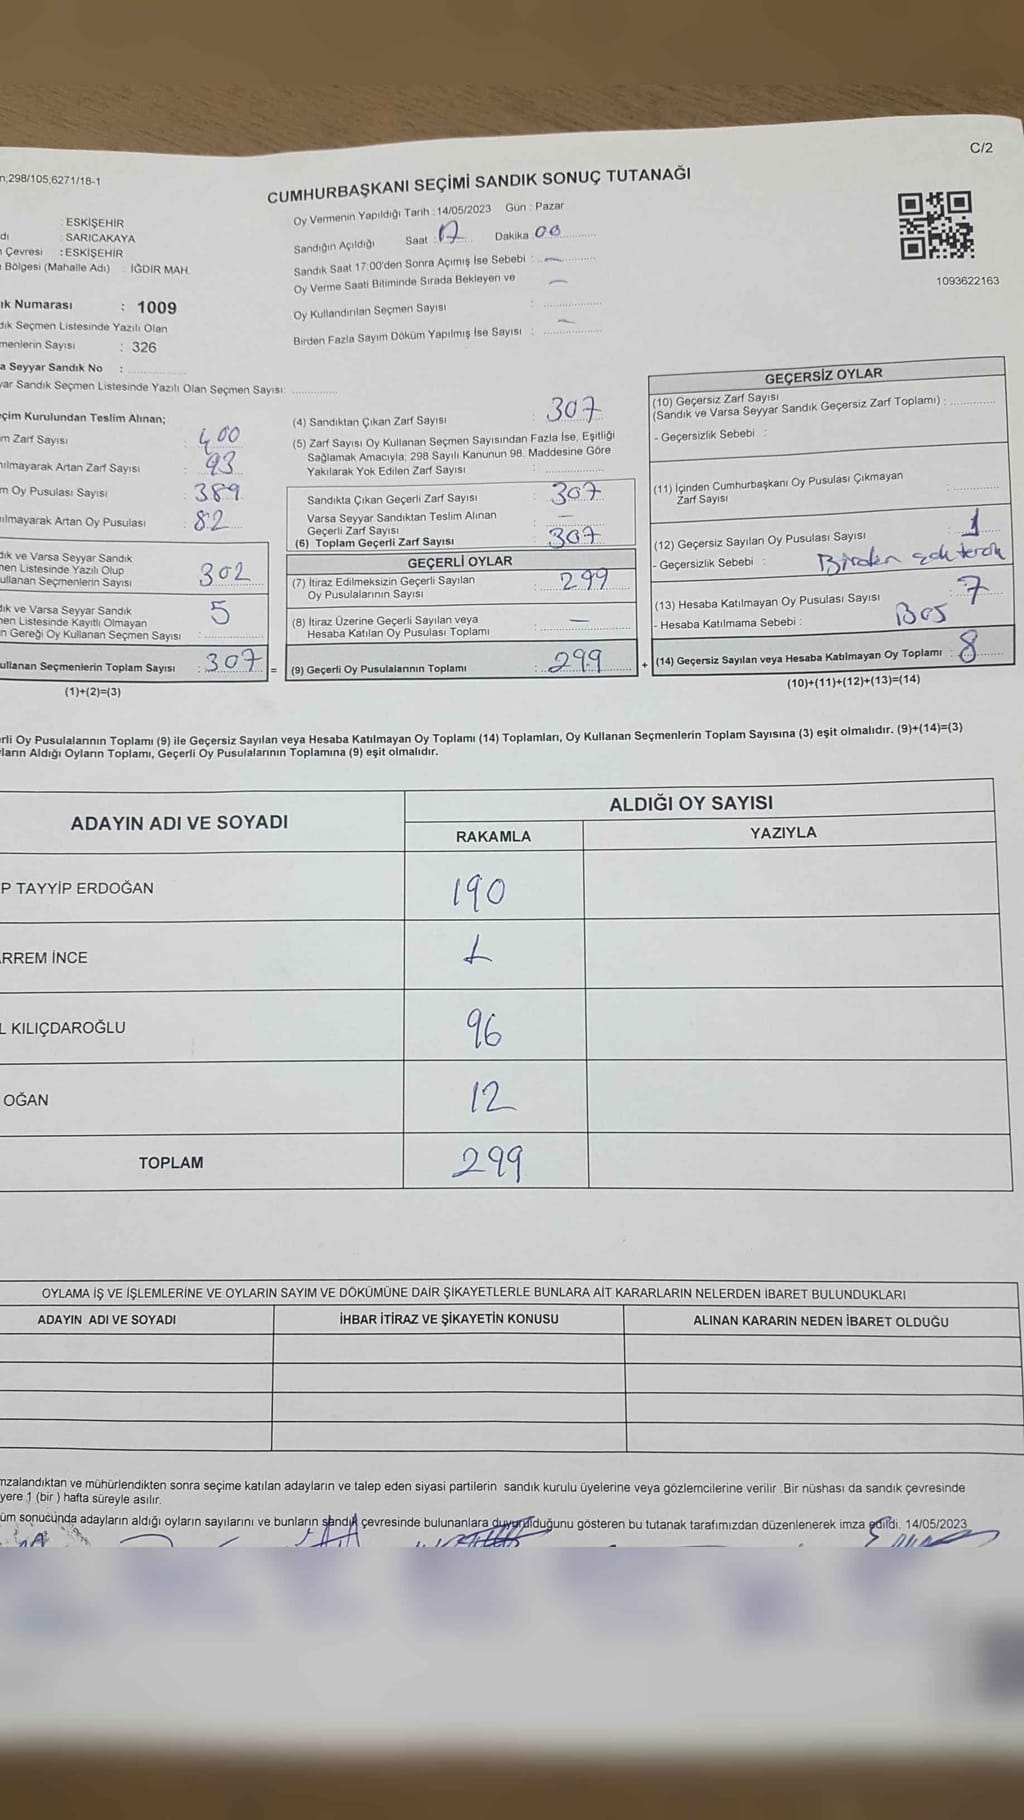 C/2
n,298/105,6271/18-1
CUMHURBAŞKANI SEÇİMİ SANDIK SONUÇ TUTANAĞI
: ESKİŞEHİR
dı : SARICAKAYA
n Çevresi : ESKİŞEHİR
Bölgesi (Mahalle Adı) : IĞDIR MAH.
ık Numarası : 1009
dık Seçmen Listesinde Yazılı Olan
menlerin Sayısı : 326
a Seyyar Sandık No :
yar Sandık Seçmen Listesinde Yazılı Olan Seçmen Sayısı:
Oy Vermenin Yapıldığı Tarih : 14/05/2023 Gün : Pazar
Sandığın Açıldığı Saat : 17 Dakika : 00
Sandık Saat 17:00'den Sonra Açımış İse Sebebi : —
Oy Verme Saati Bitiminde Sırada Bekleyen ve —
Oy Kullandırılan Seçmen Sayısı :
Birden Fazla Sayım Döküm Yapılmış İse Sayısı : —
1093622163
çim Kurulundan Teslim Alınan;
m Zarf Sayısı : 400
nılmayarak Artan Zarf Sayısı : 93
m Oy Pusulası Sayısı : 389
nılmayarak Artan Oy Pusulası : 82
dık ve Varsa Seyyar Sandık
men Listesinde Yazılı Olup
ullanan Seçmenlerin Sayısı : 302
dık ve Varsa Seyyar Sandık
men Listesinde Kayıtlı Olmayan
n Gereği Oy Kullanan Seçmen Sayısı : 5
ullanan Seçmenlerin Toplam Sayısı : 307 =
(1)+(2)=(3)
(4) Sandıktan Çıkan Zarf Sayısı : 307
(5) Zarf Sayısı Oy Kullanan Seçmen Sayısından Fazla İse, Eşitliği
Sağlamak Amacıyla; 298 Sayılı Kanunun 98. Maddesine Göre
Yakılarak Yok Edilen Zarf Sayısı :
Sandıkta Çıkan Geçerli Zarf Sayısı : 307
Varsa Seyyar Sandıktan Teslim Alınan
Geçerli Zarf Sayısı : —
(6) Toplam Geçerli Zarf Sayısı : 307
GEÇERLİ OYLAR
(7) İtiraz Edilmeksizin Geçerli Sayılan
Oy Pusulalarının Sayısı : 299
(8) İtiraz Üzerine Geçerli Sayılan veya
Hesaba Katılan Oy Pusulası Toplamı : —
(9) Geçerli Oy Pusulalarının Toplamı : 299 +
GEÇERSİZ OYLAR
(10) Geçersiz Zarf Sayısı
(Sandık ve Varsa Seyyar Sandık Geçersiz Zarf Toplamı) :
- Geçersizlik Sebebi :
(11) İçinden Cumhurbaşkanı Oy Pusulası Çıkmayan
Zarf Sayısı :
(12) Geçersiz Sayılan Oy Pusulası Sayısı : 1
- Geçersizlik Sebebi : Birden çok tercih
(13) Hesaba Katılmayan Oy Pusulası Sayısı : 7
- Hesaba Katılmama Sebebi : Boş
(14) Geçersiz Sayılan veya Hesaba Katılmayan Oy Toplamı : 8
(10)+(11)+(12)+(13)=(14)
rli Oy Pusulalarının Toplamı (9) ile Geçersiz Sayılan veya Hesaba Katılmayan Oy Toplamı (14) Toplamları, Oy Kullanan Seçmenlerin Toplam Sayısına (3) eşit olmalıdır. (9)+(14)=(3)
ların Aldığı Oyların Toplamı, Geçerli Oy Pusulalarının Toplamına (9) eşit olmalıdır.
ADAYIN ADI VE SOYADI ALDIĞI OY SAYISI
RAKAMLA YAZIYLA
P TAYYİP ERDOĞAN 190
RREM İNCE 1
L KILIÇDAROĞLU 96
OĞAN 12
TOPLAM 299
OYLAMA İŞ VE İŞLEMLERİNE VE OYLARIN SAYIM VE DÖKÜMÜNE DAİR ŞİKAYETLERLE BUNLARA AİT KARARLARIN NELERDEN İBARET BULUNDUKLARI
ADAYIN ADI VE SOYADI İHBAR İTİRAZ VE ŞİKAYETİN KONUSU ALINAN KARARIN NEDEN İBARET OLDUĞU
mzalandıktan ve mühürlendikten sonra seçime katılan adayların ve talep eden siyasi partilerin sandık kurulu üyelerine veya gözlemcilerine verilir .Bir nüshası da sandık çevresinde
yere 1 (bir ) hafta süreyle asılır.
üm sonucunda adayların aldığı oyların sayılarını ve bunların sandık çevresinde bulunanlara duyurulduğunu gösteren bu tutanak tarafımızdan düzenlenerek imza edildi. 14/05/2023